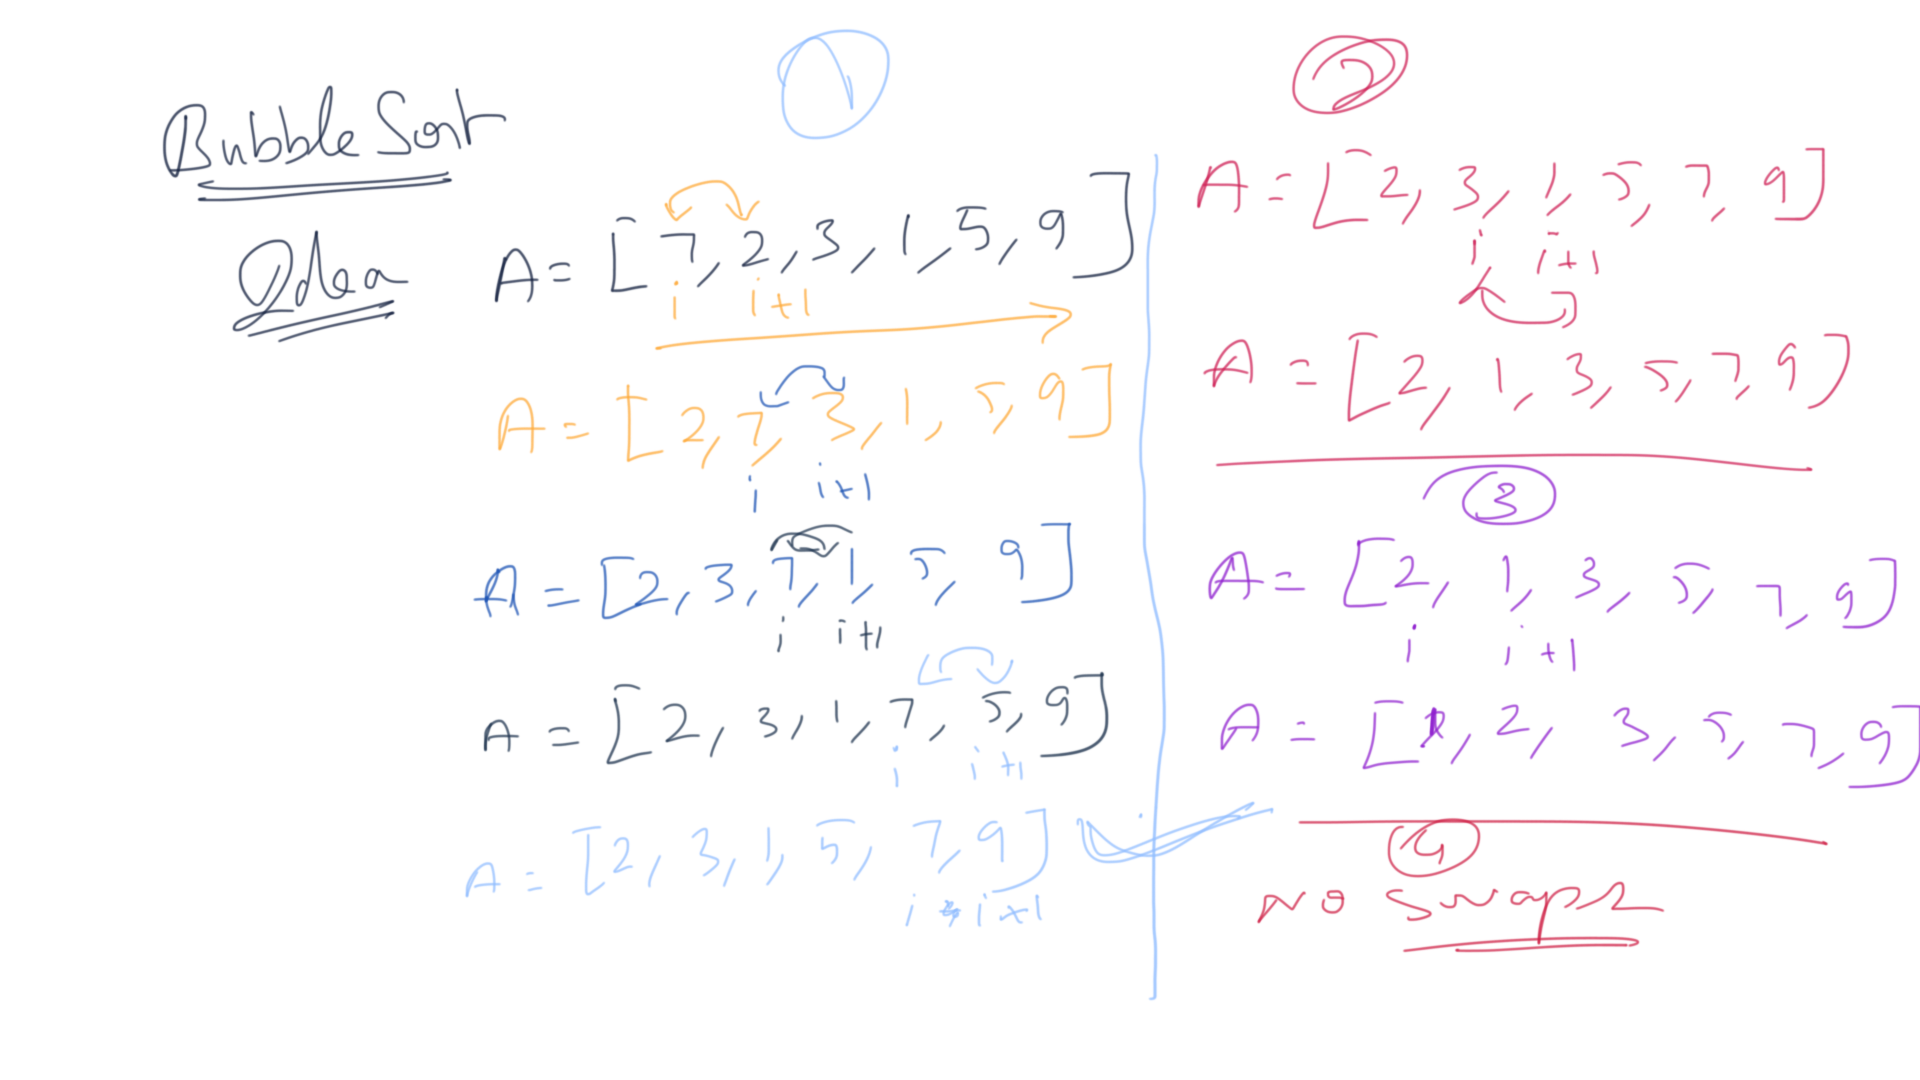 Bubble Sort
Idea
1
A = [7, 2, 3, 1, 5, 9]
i i+1
A = [2, 7, 3, 1, 5, 9]
i i+1
A = [2, 3, 7, 1, 5, 9]
i i+1
A = [2, 3, 1, 7, 5, 9]
i i+1
A = [2, 3, 1, 5, 7, 9]
i i+1
2
A = [2, 3, 1, 5, 7, 9]
i i+1
A = [2, 1, 3, 5, 7, 9]
3
A = [2, 1, 3, 5, 7, 9]
i i+1
A = [1, 2, 3, 5, 7, 9]
4
No Swaps